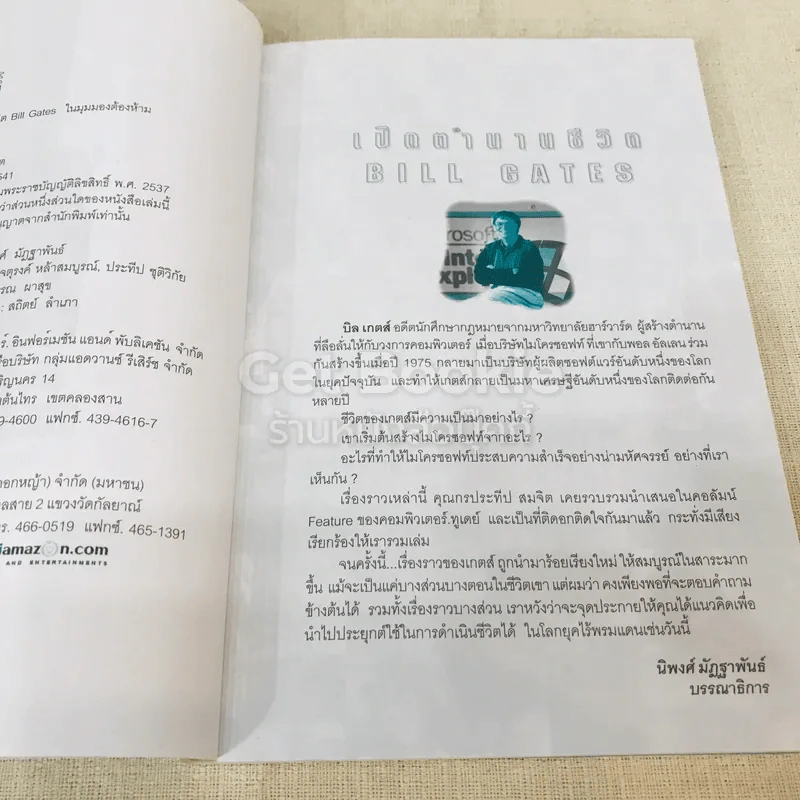 ต Bill Gates ในมุมมองต้องห้าม
541
นพระราชบัญญัติลิขสิทธิ์ พ.ศ. 2537
ว่าส่วนหนึ่งส่วนใดของหนังสือเล่มนี้
ญาตจากสำนักพิมพ์เท่านั้น
ศ์ มัฏฐาพันธ์
จตุรงค์ หล้าสมบูรณ์, ประทีป ชุติวิกัย
รณ ผาสุข
: สถิตย์ ลำเภา
ร์. อินฟอร์เมชัน แอนด์ พับลิเคชัน จำกัด
รือบริษัท กลุ่มแอดวานซ์ รีเสิร์ซ จำกัด
ริญนคร 14
งต้นไทร เขตคลองสาน
9-4600 แฟกซ์. 439-4616-7
ดอกหญ้า) จำกัด (มหาชน)
ลสาย 2 แขวงวัดกัลยาณ์
ร. 466-0519 แฟกซ์. 465-1391
iamazon.com
AND ENTERTAINMENTS
เปิดตำนานชีวิต
BILL GATES
rosoft
Inte
xpl
บิล เกตส์ อดีตนักศึกษากฎหมายจากมหาวิทยาลัยฮาร์วาร์ด ผู้สร้างตำนาน
ที่ลือลั่นให้กับวงการคอมพิวเตอร์ เมื่อบริษัทไมโครซอฟท์ ที่เขากับพอล อัลเลน ร่วม
กันสร้างขึ้นเมื่อปี 1975 กลายมาเป็นบริษัทผู้ผลิตซอฟต์แวร์อันดับหนึ่งของโลก
ในยุคปัจจุบัน และทำให้เกตส์กลายเป็นมหาเศรษฐีอันดับหนึ่งของโลกติดต่อกัน
หลายปี
ชีวิตของเกตส์มีความเป็นมาอย่างไร ?
เขาเริ่มต้นสร้างไมโครซอฟท์จากอะไร ?
อะไรที่ทำให้ไมโครซอฟท์ประสบความสำเร็จอย่างน่ามหัศจรรย์ อย่างที่เรา
เห็นกัน ?
เรื่องราวเหล่านี้ คุณกรประทีป สมจิต เคยรวบรวมนำเสนอในคอลัมน์
Feature ของคอมพิวเตอร์.ทูเดย์ และเป็นที่ติดอกติดใจกันมาแล้ว กระทั่งมีเสียง
เรียกร้องให้เรารวมเล่ม
จนครั้งนี้...เรื่องราวของเกตส์ ถูกนำมาร้อยเรียงใหม่ ให้สมบูรณ์ในสาระมาก
ขึ้น แม้จะเป็นแค่บางส่วนบางตอนในชีวิตเขา แต่ผมว่า คงเพียงพอที่จะตอบคำถาม
ข้างต้นได้ รวมทั้งเรื่องราวบางส่วน เราหวังว่าจะจุดประกายให้คุณได้แนวคิดเพื่อ
นำไปประยุกต์ใช้ในการดำเนินชีวิตได้ ในโลกยุคไร้พรมแดนเช่นวันนี้
นิพงศ์ มัฏฐาพันธ์
บรรณาธิการ
Get Bookie
ร้านหนังสือมือหนี้